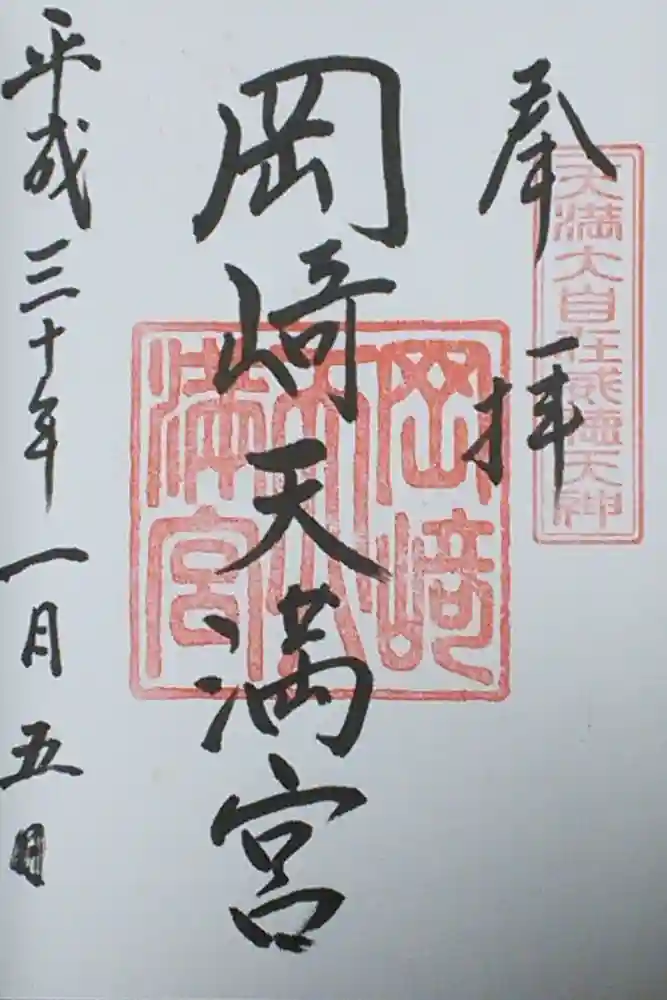 奉拝
天満大自在威徳天神
岡崎天満宮
岡崎天満宮
平成三十年一月五日